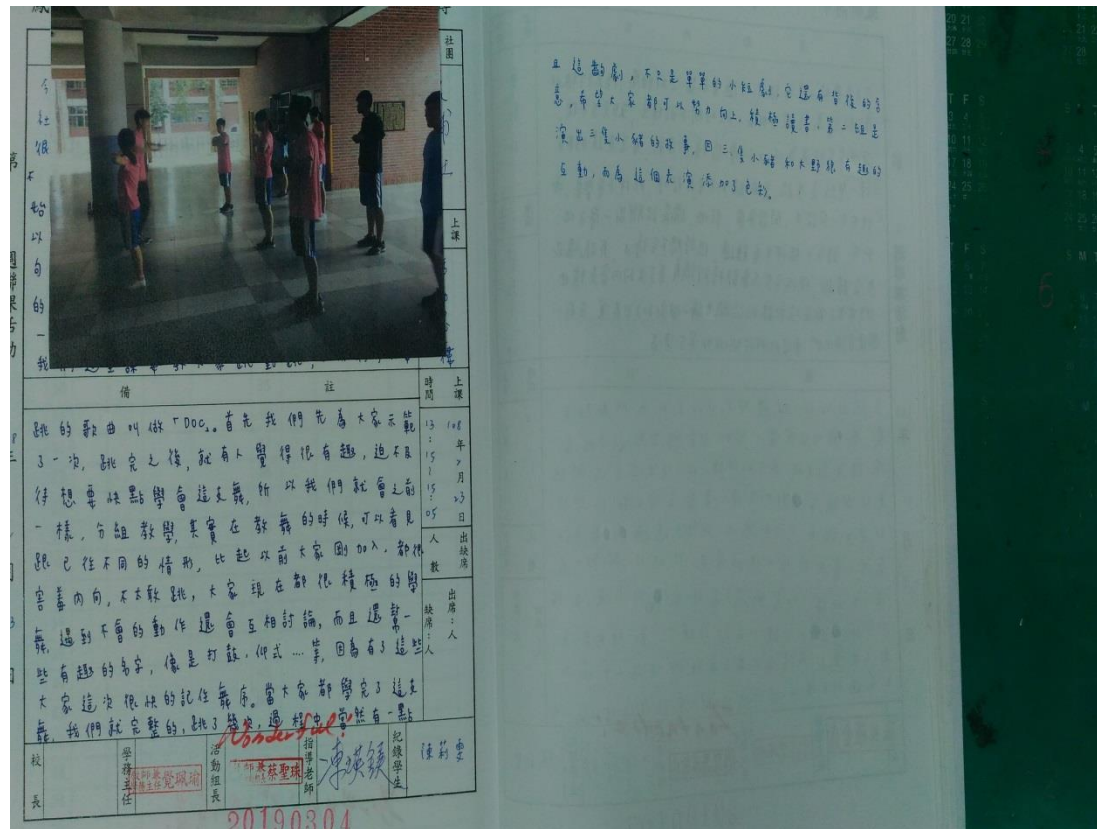 社團
上課
備 註
上課時間
跳的歌曲叫做「DOC」。首先我們先為大家示範
了一次,跳完之後,就有人覺得很有趣,迫不及
待想要快點學會這支舞,所以我們就會之前
一樣,分組教學,其實在教舞的時候,可以看見
跟已往不同的情形,比起以前大家剛加入,都很
害羞內向,不太敢跳,大家現在都很積極的學
舞,遇到不會的動作還會互相討論,而且還幫一
些有趣的名字,像是打鼓、仰式....等,因為有了這些
大家這次很快的記住舞序。當大家都學完了這支
舞,我們就完整的,跳了幾次,過程中當然有一點
13:15-15:05
108年2月23日
出缺席人數
出席:人
缺席:人
Wonderful!
校長
學務主任
活動組長
蔡聖珠
指導老師
紀錄學生
陳莉雯
20190304
且這齣劇,不只是單單的小短劇,它還有背後的含
意,希望大家都可以努力向上,積極讀書。第二組是
演出三隻小豬的故事,因三隻小豬和大野狼有趣的
互動,而為這個表演添加了色彩。